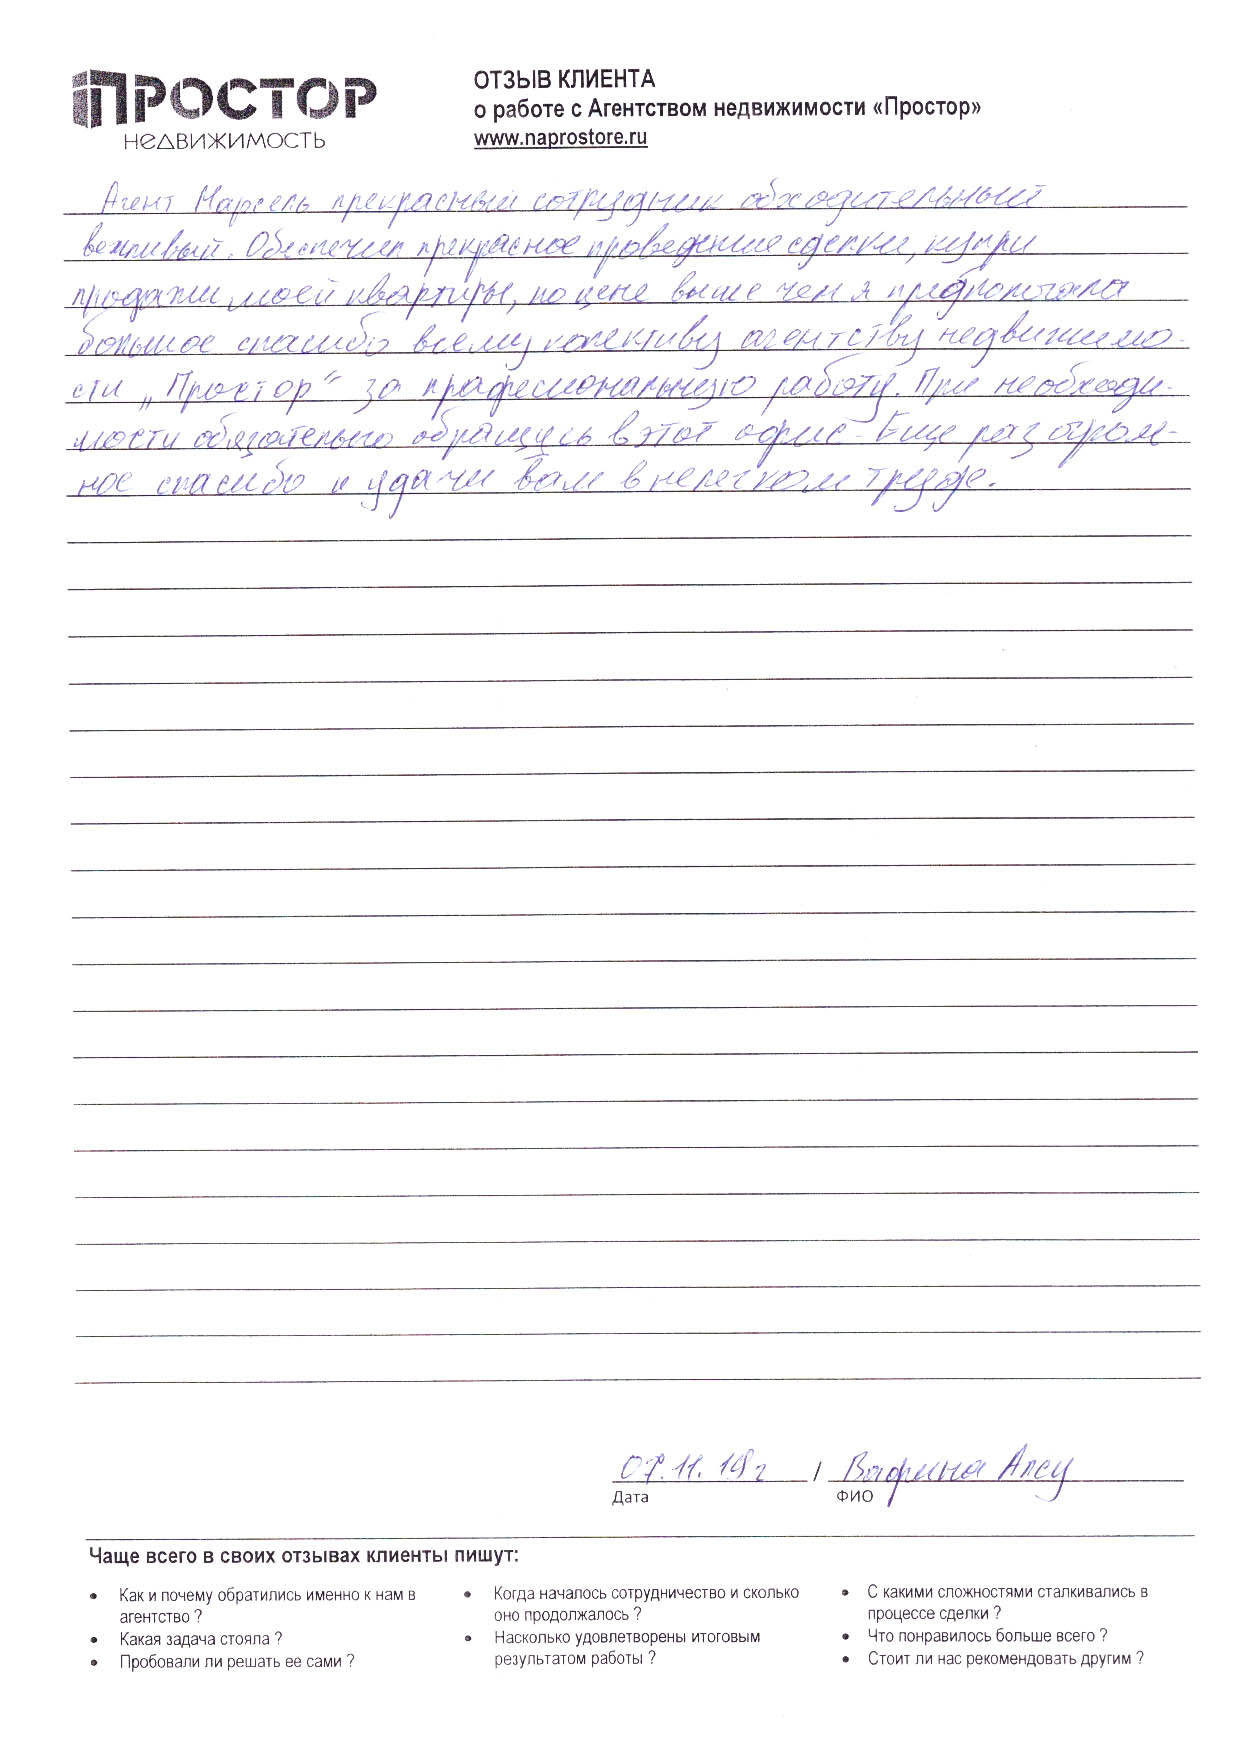 ПРОСТОР
НЕДВИЖИМОСТЬ
ОТЗЫВ КЛИЕНТА
о работе с Агентством недвижимости «Простор»
www.naprostore.ru
Агент Марсель прекрасный сотрудник обходительный
вежливый. Обеспечил прекрасное проведение сделки, при
продажи моей квартиры, по цене выше чем я предпологала
большое спасибо всему колективу агентству недвижимо-
сти „Простор" за професиональную работу. При необходи-
мости обязательно обращусь в этот офис. Еще раз огром-
ное спасибо и удачи Вам в нелегком труде.
07.11.19г / Вафина Алсу
Дата ФИО
Чаще всего в своих отзывах клиенты пишут:
• Как и почему обратились именно к нам в
агентство ?
• Какая задача стояла ?
• Пробовали ли решать ее сами ?
• Когда началось сотрудничество и сколько
оно продолжалось ?
• Насколько удовлетворены итоговым
результатом работы ?
• С какими сложностями сталкивались в
процессе сделки ?
• Что понравилось больше всего ?
• Стоит ли нас рекомендовать другим ?